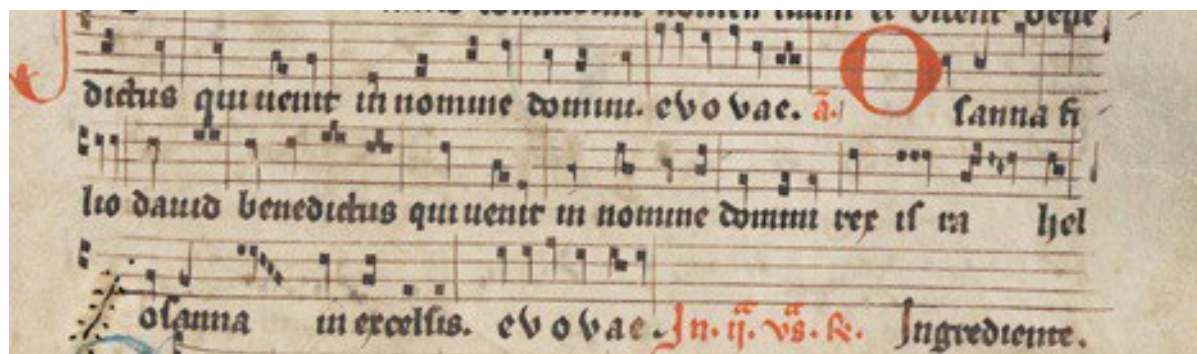 nomen tuum et dicent bene
dictus qui uenit in nomine domini. evovae. a. Osanna fi
lio dauid benedictus qui uenit in nomine domini rex is ra hel
osanna in excelsis. evovae. In. ij. vs. R. Ingrediente.